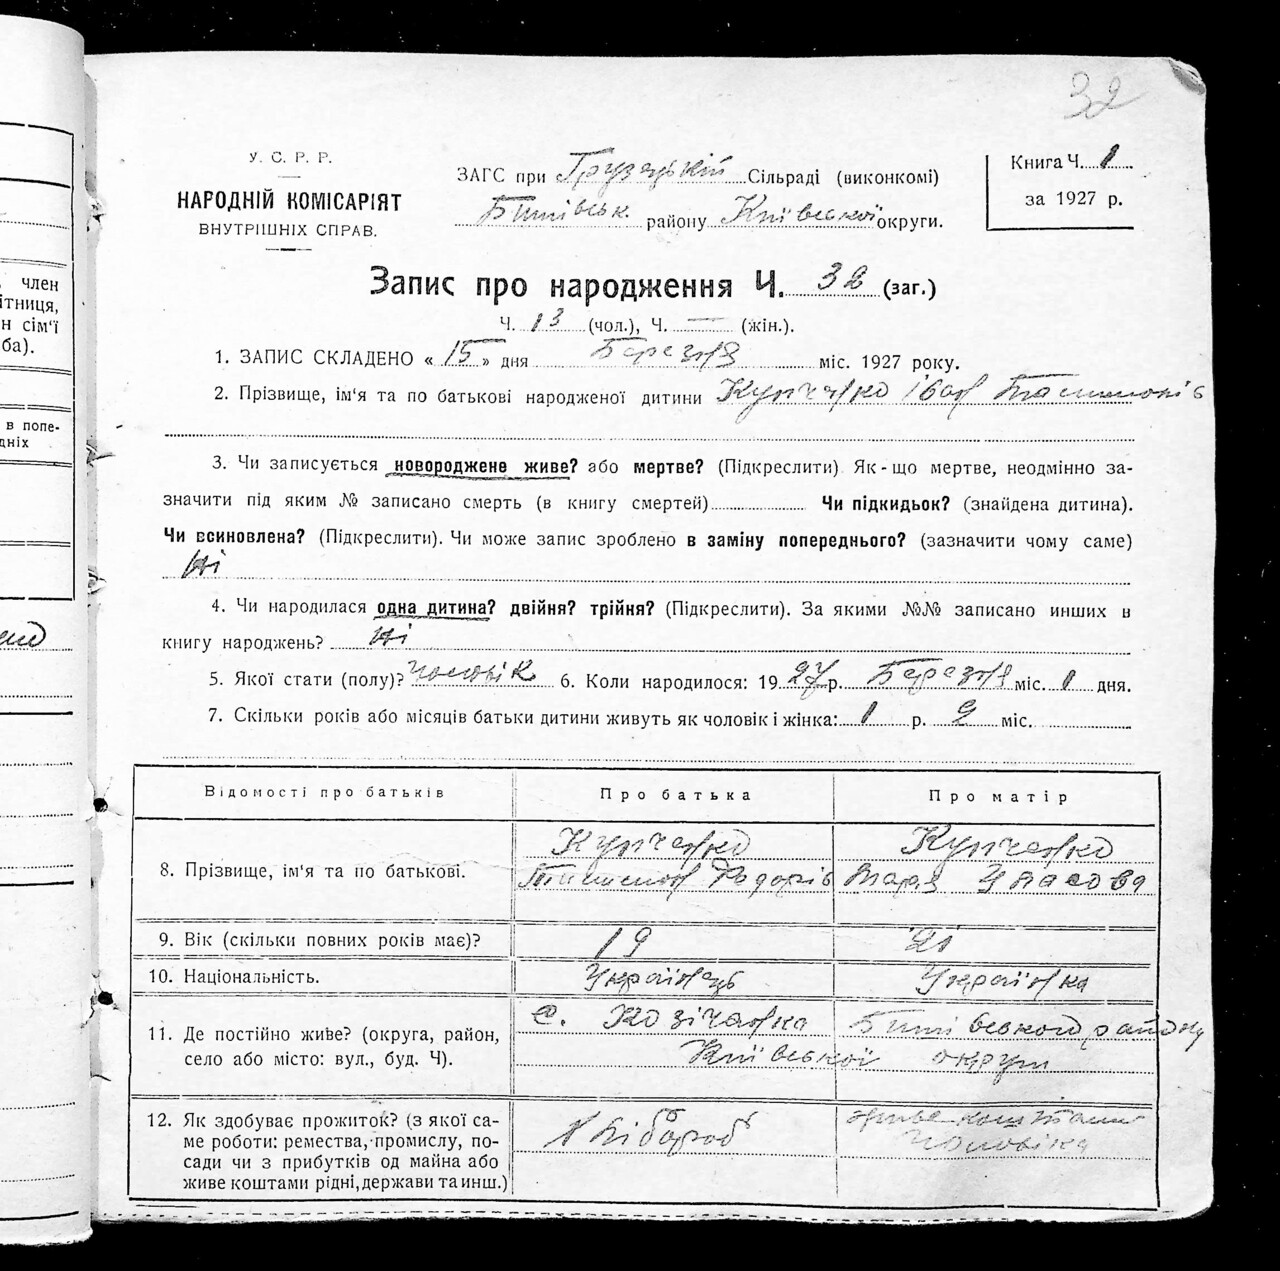 32
У. С. Р. Р.
НАРОДНІЙ КОМІСАРІЯТ
ВНУТРІШНІХ СПРАВ.
ЗАГС при Грузецькій Сільраді (виконкомі)
Бишівськ. району Київської округи.
Книга Ч. 1
за 1927 р.
Запис про народження Ч. 32 (заг.)
Ч. 13 (чол.), Ч. — (жін.).
1. ЗАПИС СКЛАДЕНО « 15 » дня Березня міс. 1927 року.
2. Прізвище, ім'я та по батькові народженої дитини Купченко Іван
3. Чи записується новороджене живе? або мертве? (Підкреслити) Як-що мертве, неодмінно за-
значити під яким № записано смерть (в книгу смертей) Чи підкидьок? (знайдена дитина).
Чи всиновлена? (Підкреслити). Чи може запис зроблено в заміну попереднього? (зазначити чому саме)
Ні
4. Чи народилася одна дитина? двійня? трійня? (Підкреслити). За якими №№ записано инших в
книгу народжень? Ні
5. Якої стати (полу)? Чоловік 6. Коли народилося: 1927 р. Березня міс. 1 дня.
7. Скільки років або місяців батьки дитини живуть як чоловік і жінка: 1 р. 9 міс.
Відомості про батьків
Про батька
Про матір
8. Прізвище, ім'я та по батькові.
Купченко
Купченко
9. Вік (скільки повних років має)?
19
21
10. Національність.
Українець
Українка
11. Де постійно живе? (округа, район,
село або місто: вул., буд. Ч).
с. Козічанка Бишівського району
Київської округи
12. Як здобуває прожиток? (з якої са-
ме роботи: ремества, промислу, по-
сади чи з прибутків од майна або
живе коштами рідні, держави та инш.)
Хлібороб
живе коштами
чоловіка
член
ітниця,
н сім'ї
ба).
в попе-
дніх